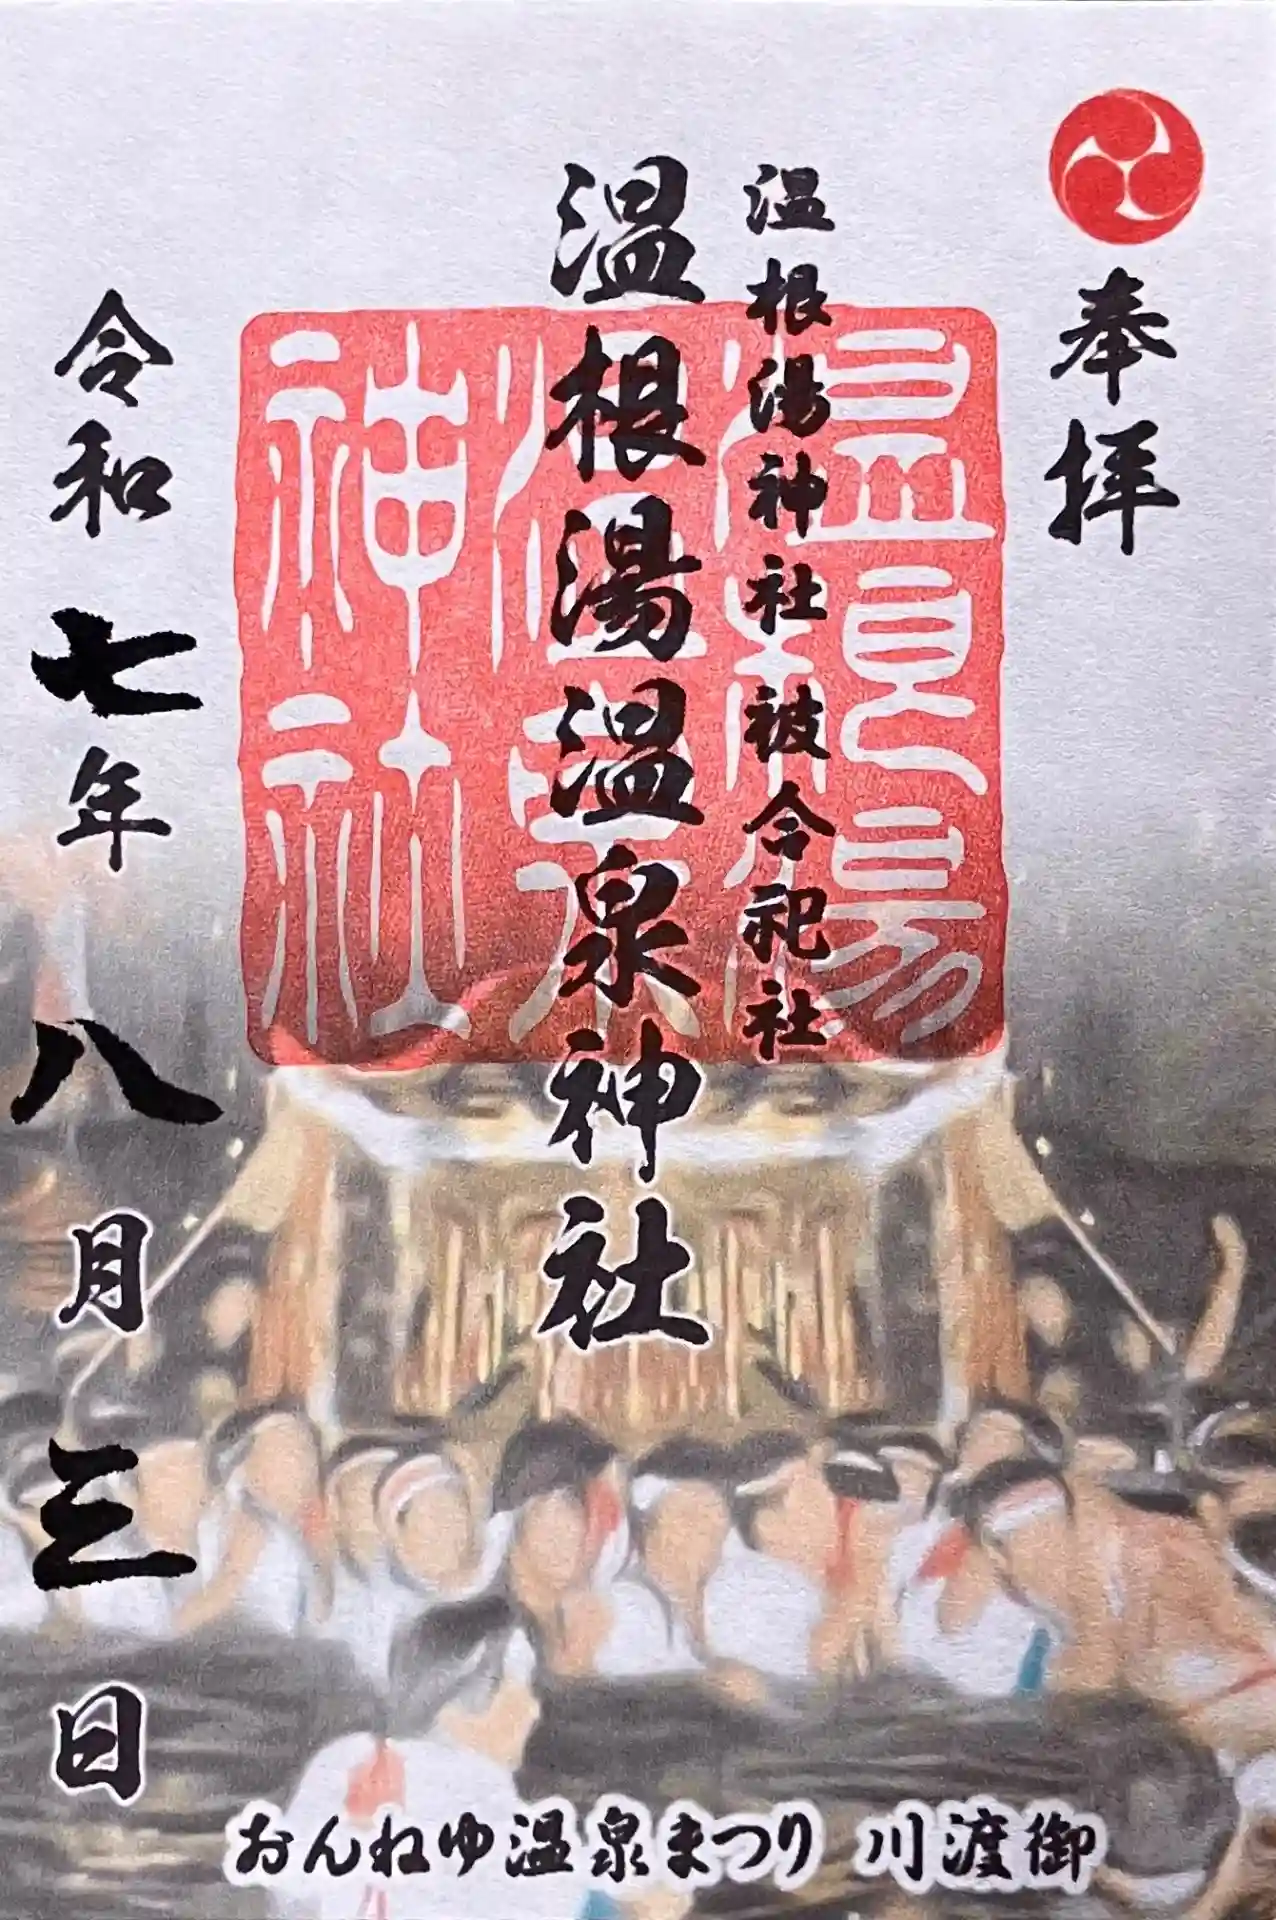 奉拝
温根湯神社被合祀社
温根湯温泉神社
温根湯
温泉
神社
令和七年八月三日
おんねゆ温泉まつり 川渡御